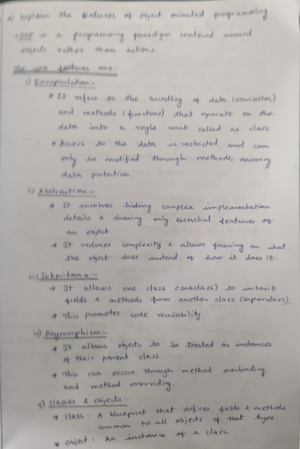 a) Explain the features of object oriented programming
→ OOP is a programming paradigm centered around
objects rather than actions.
The core features are:
i) Encapsulation :-
* It refers to the bundling of data (variables)
and methods (functions) that operate on the
data into a single unit called as class
* Access to the data is restricted and can
only be modified through methods, ensuring
data protection.
ii) Abstraction :-
* It involves hiding complex implementation
details & showing only essential features of
an object.
* It reduces complexity & allows focusing on what
the object does instead of how it does it.
iii) Inheritance :-
* It allows one class (subclass) to inherit
fields & methods from another class (superclass).
* This promotes code reusability.
iv) Polymorphism :-
* It allows objects to be treated as instances
of their parent class.
* This can occur through method overloading
and method overriding.
v) Classes & objects :-
* Class : A blueprint that defines fields & methods
common to all objects of that type.
* Object : An instance of a class.